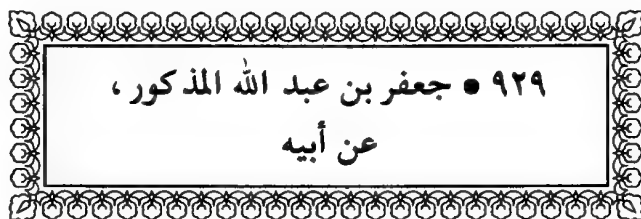 ٩٢٩ • جعفر بن عبد الله المذكور،
عن أبيه